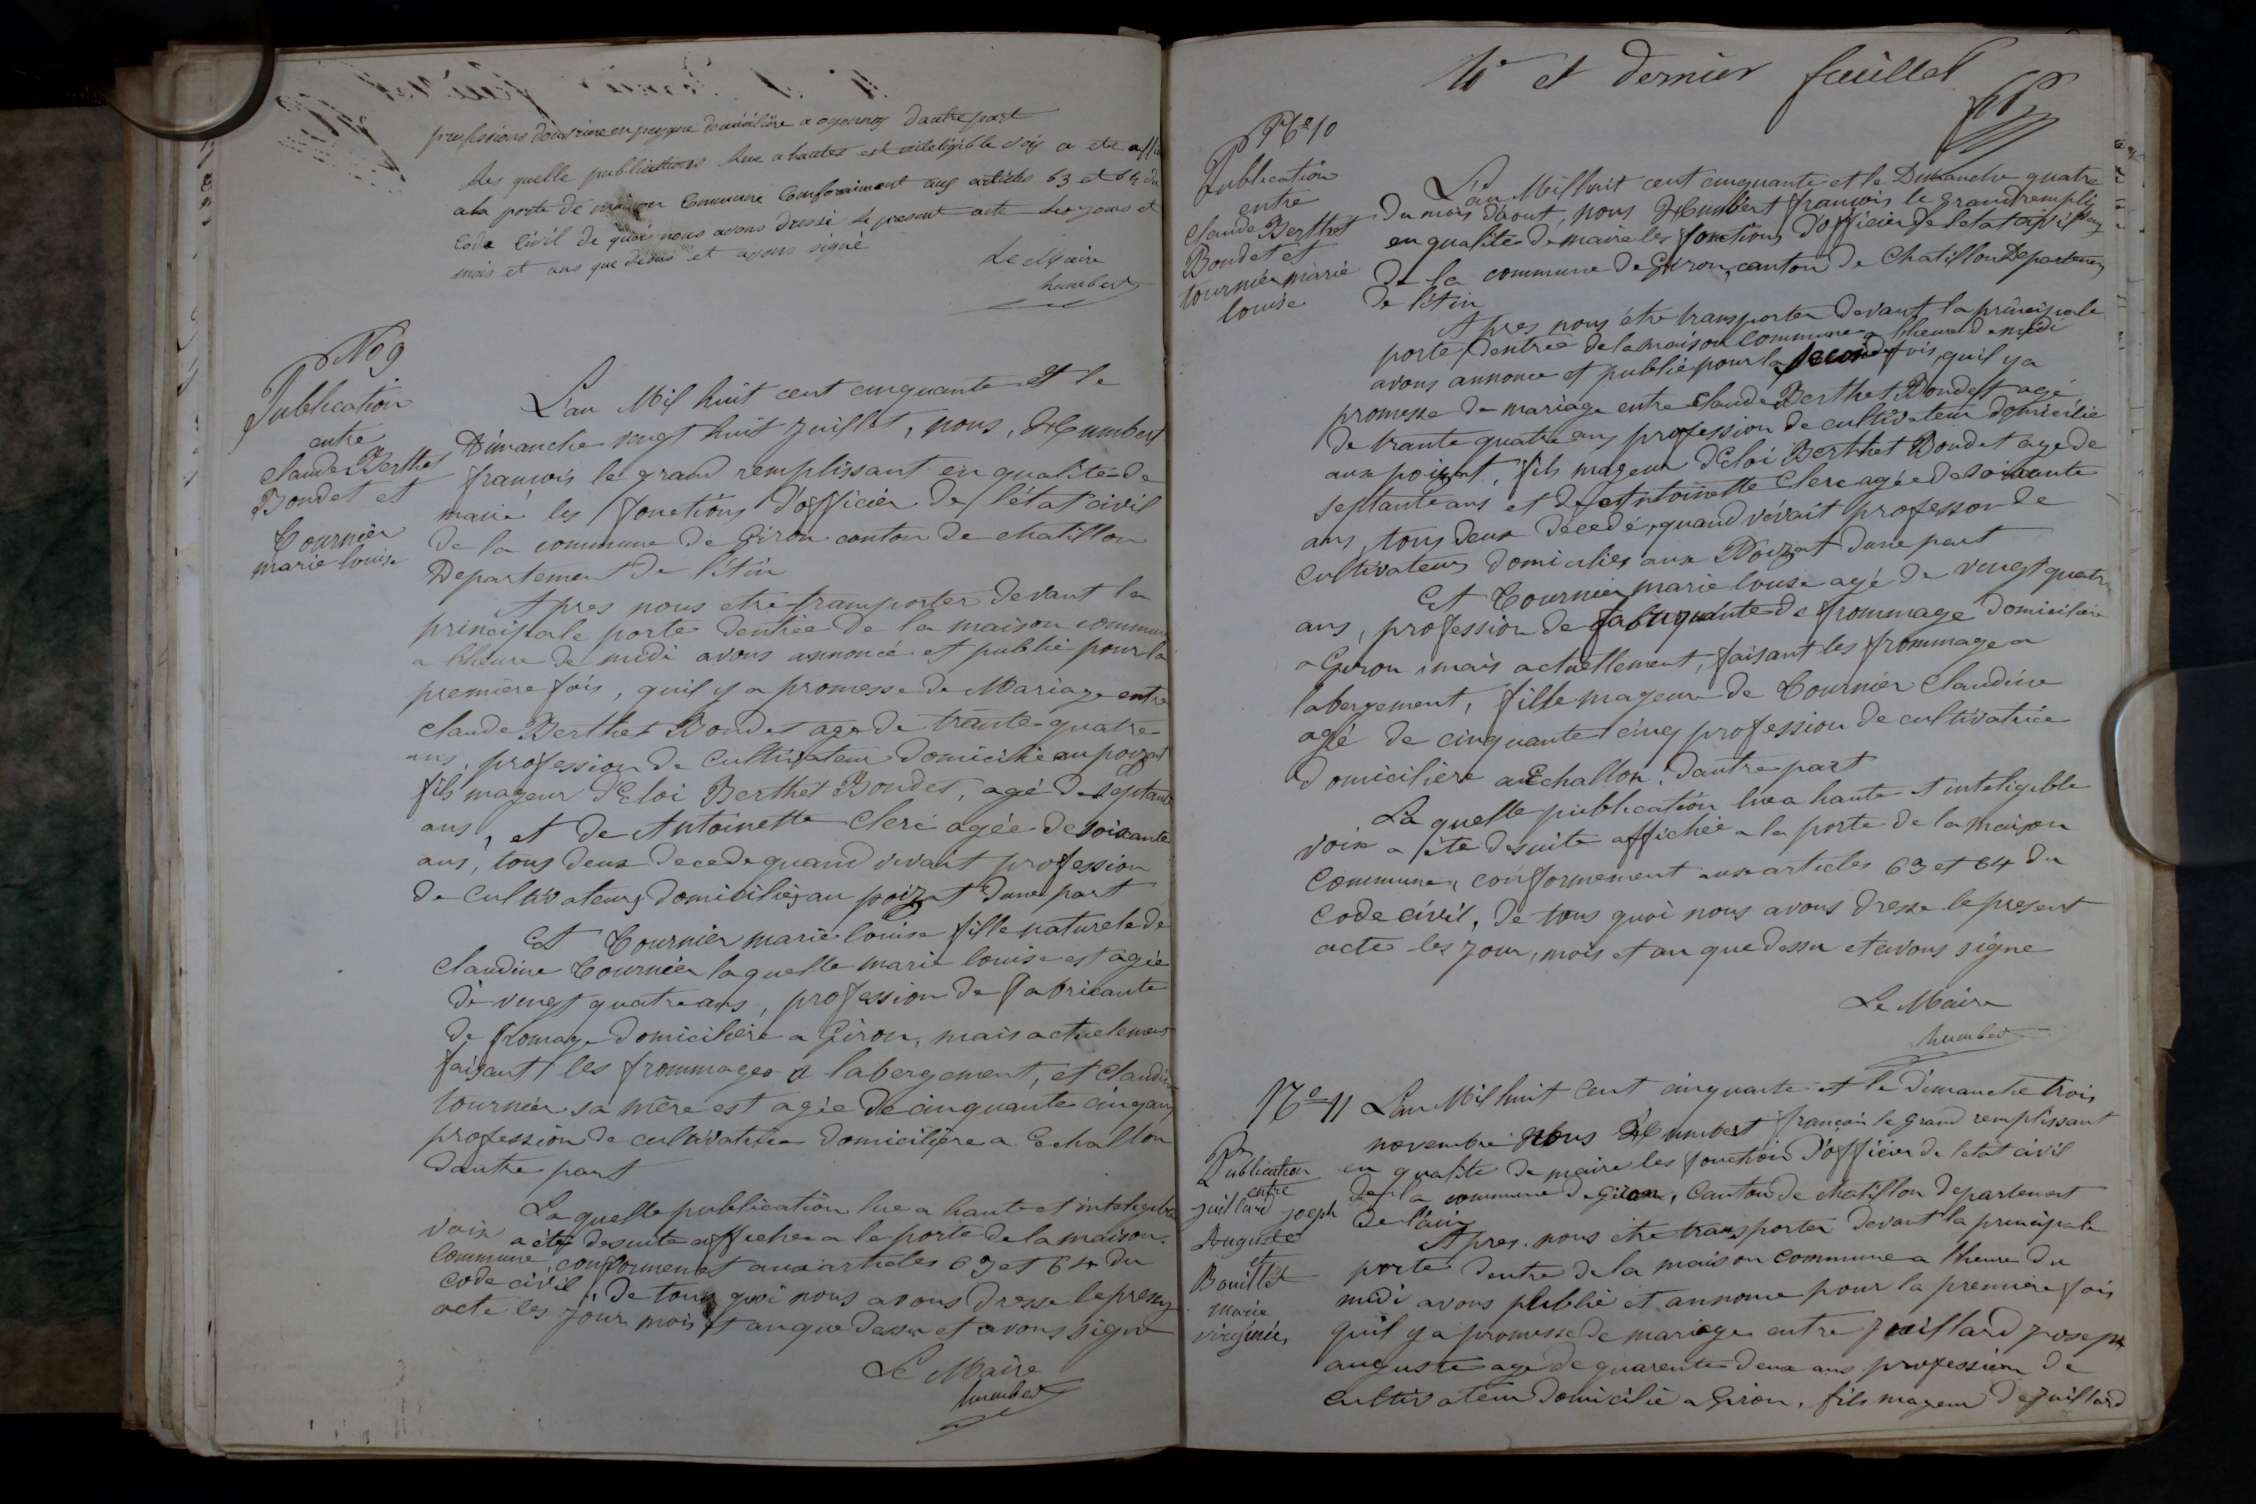 professions d'ouvrière en peygne domicilière a oyonnay d'autre part
les quelle publications lue a hautes et inteligible voix a ete affi
a la porte de maison Commune Conforaiment aux articles 63 et 64 du
Code Civil de quoi nous avons dressé le present acte les jours et
mois et ans que dessus et avons signé
Le Maire
humbert
No 9
Publication
entre
Claude Berthet
Bondet et
Tournier
marie louise
L'an Mil huit cent cinquante et le
Dimanche vengt huit Juillet, nous, Humbert
françois le grand remplissant en qualité de
maire les fonctions d'officier de l'état civil
de la commune de Giron canton de chatillon
Departement de l'Ain
Apres nous etre transporter devant la
principale porte dentrée de la maison commune
a lheure de midi avons annoncé et publié pour la
première fois, quil y a promesse de Mariage entre
Claude Berthet Bondet age de trante quatre
ans, profession de Cultivateur domicilié au poizat
fils mageur d'Eloi Berthet Bondet, agé de septante
ans, et de Antoinette Clerc agée de soixante
ans, tous deux decede quand vivait profession
de Cultivateurs domiciliés au poizat dune part
Et Tournier marie louise fille naturele de
Claudine Tournier laquelle marie louise est agée
de vengt quatre ans, profession de fabricante
de fromage domicilière a Giron, mais actuelement
faisant les frommages a labergement, et Claudine
tournier sa mère est agée de cinquante cinq ans
profession de cultivatrice domicilière a Echallon
dautre part
La quelle publication lue a haute et inteligible
voix a été desuite affichée a la porte de la maison
Commune, conformement aux articles 63 et 64 du
Code civil, de tous quoi nous avons dresse le present
acte les jour mois et an que dessu et avons signe
Le Maire
humbert
4e et dernier feuillet
No 10
Publication
entre
Claude Berthet
Bondet et
tournier marie
louise
L'an Mil huit cent cinquante et le Dimanche quatre
du mois daout, nous Humbert françois le Grand remplis
en qualité de maire les fonctions d'officier de letat civil
de la commune de Giron, canton de Chatillon Departement
de l'Ain
Apres nous étre transporter devant la principale
porte dentrée de la maison Commune a lheure de midi
avons annonce et publié pour la seconde fois, quil y a
promesse de mariage entre Claude Berthet Bondet agé
de trante quatre ans profession de cultivateur domicilié
aux poizat, fils mageur d'Eloi Berthet Bondet age de
septante ans et de Antoinette Clerc agée de soixante
ans, tous deux decedé, quand vivait professon de
Cultivateurs domiciliés aux Poizat dune part
Et Tournier marie louise agé de vengt quatre
ans, profession de fabriquante de frommage domicilière
a Giron, mais actuellement, faisant les frommage a
labergement, fille mageure de Tournier Claudine
agé de cinquante cinq profession de cultivatrice
domicilière a Echallon, dautre part
La quelle publication lue a haute et inteligible
voix a été desuite affichée a la porte de la maison
Commune, conformement aux articles 63 et 64 du
Code civil, de tous quoi nous avons dresse le present
acte les jour, mois et an que dessu et avons signe
Le Maire
humbert
No 11
Publication
entre
juillard joseph
Auguste
et
Bouillet
marie
virginie
L'an Mil huit cent cinquante et le dimanche trois
novembre Nous Humbert françois le grand remplissant
en qualité de maire les fonction d'officier de letat civil
de la commune de Giron, Canton de chatillon departement
de l'ain
Apres nous étre transporter devant la principale
porte dentre de la maison Commune a lheure du
midi avons publié et annonce pour la premiere fois
quil y a promesse de mariage entre juillard joseph
auguste age de quarente deux ans profession de
Cultivateur domicilié a Giron, fils mageur de juillard